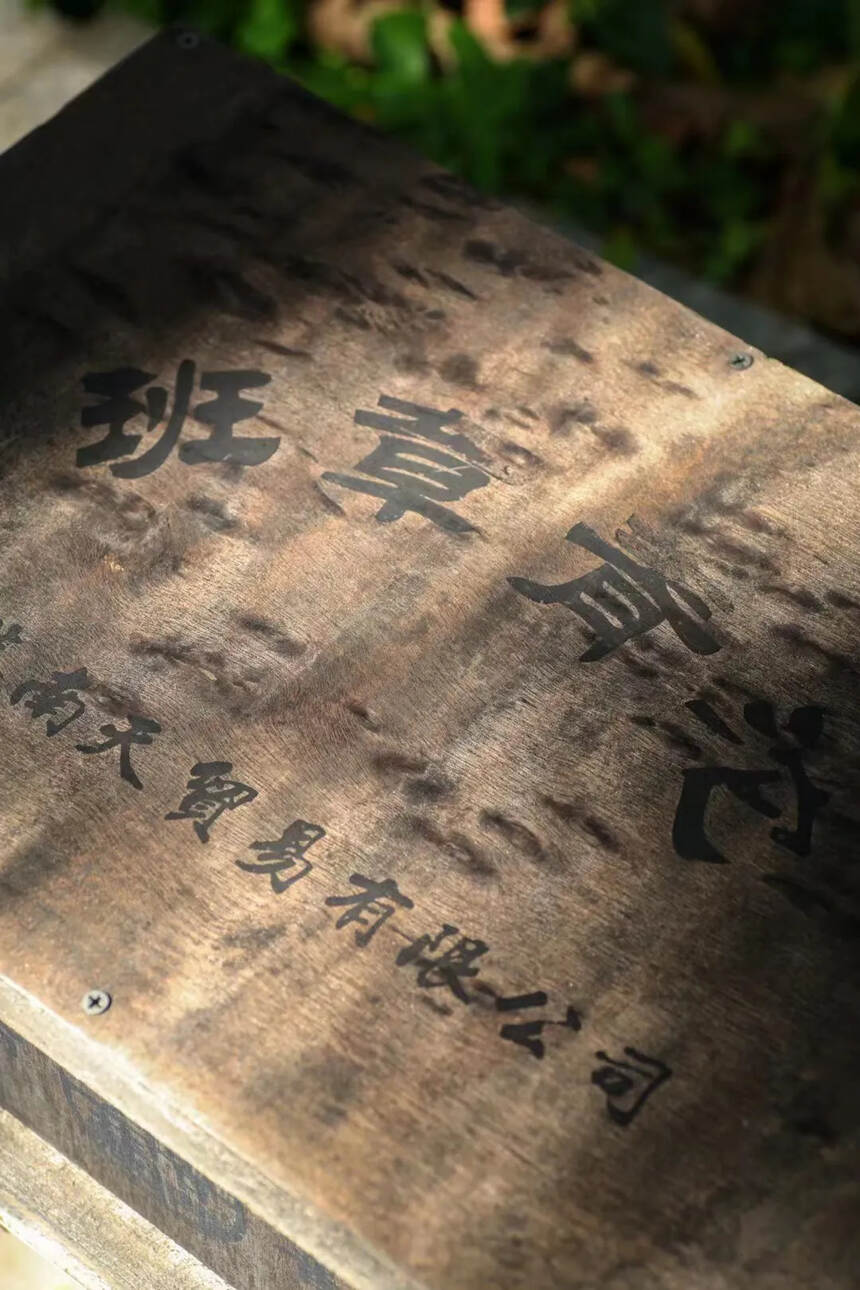 班章青沱
南天貿易有限公司